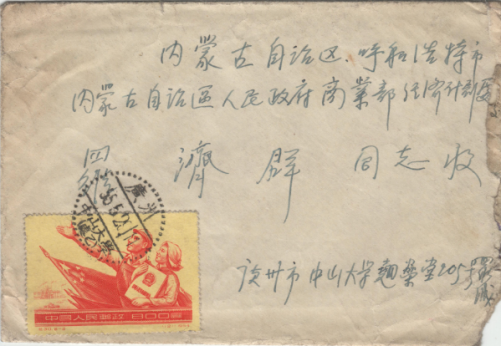 内蒙古自治区.呼和浩特市
内蒙古自治區人民政府商業部经济计划
濟群 同志收
廣州
中山大學
中國人民郵政 800圓
广州市中山大学 堂205号